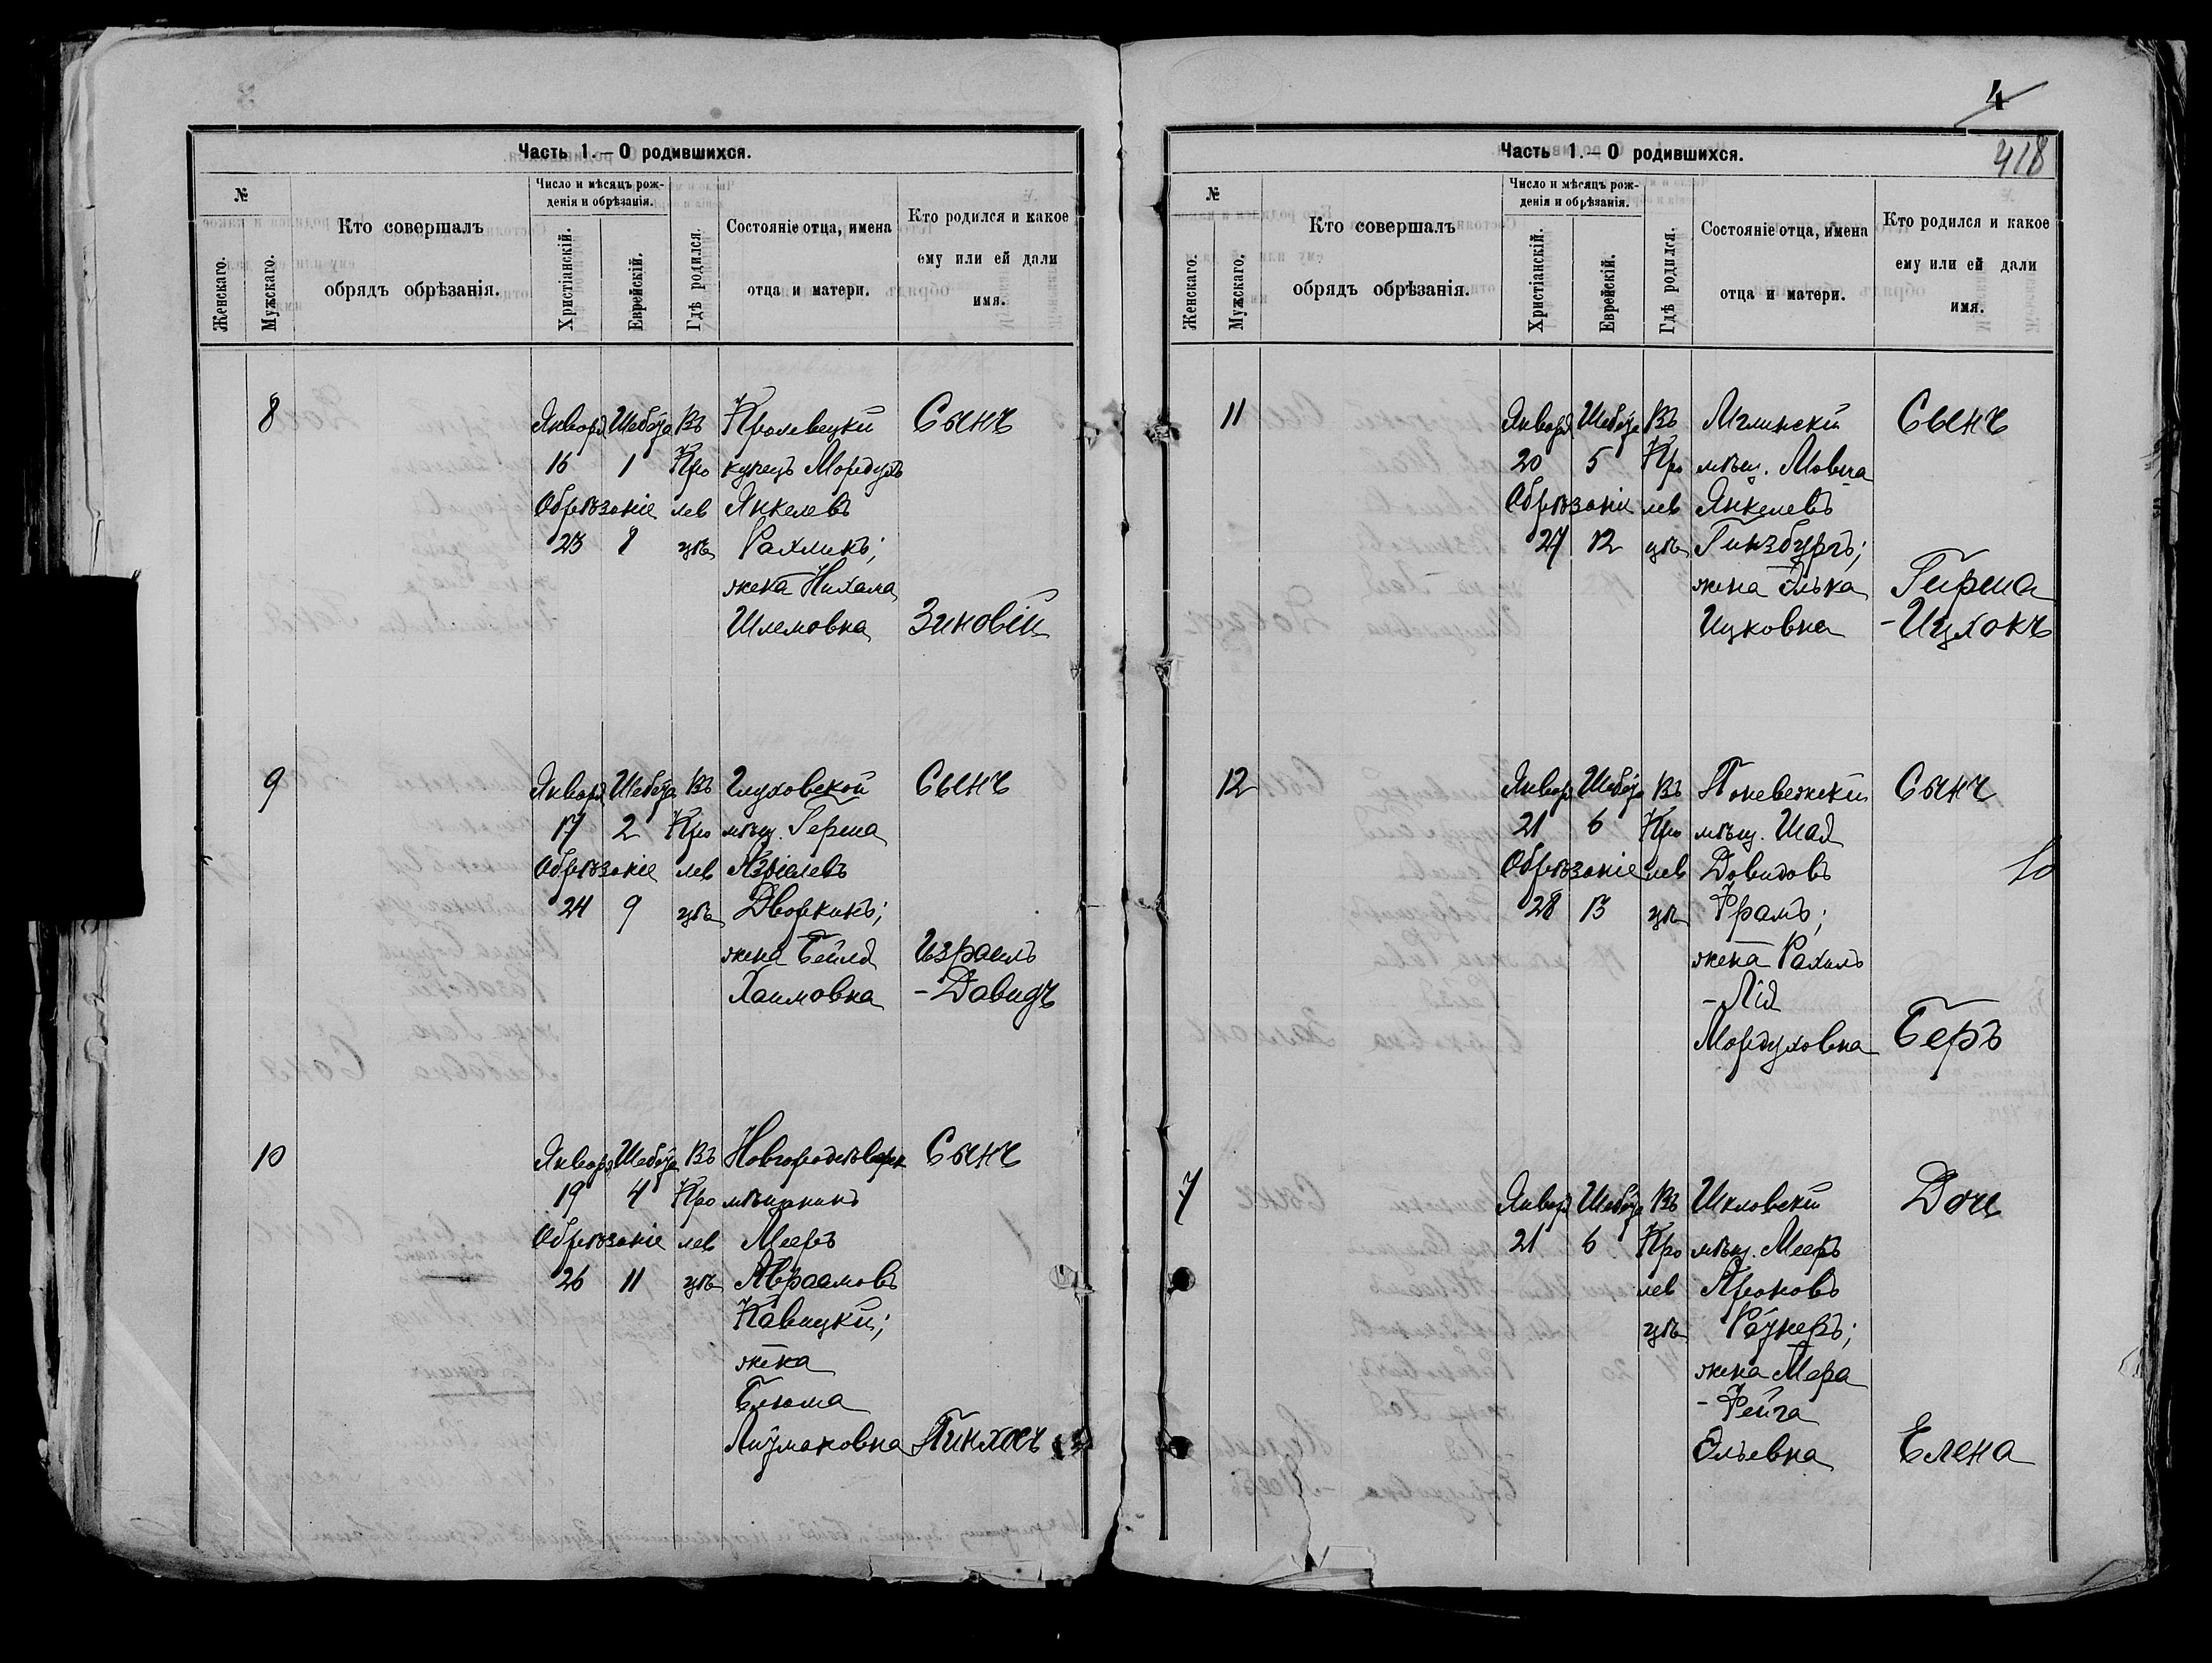 Часть 1.—О родившихся.
№
Женскаго.
Мужскаго.
Кто совершалъ
обрядъ обрѣзанія.
Число и мѣсяцъ рож-
денія и обрѣзанія.
Христіанскій.
Еврейскій.
Гдѣ родился.
Состояніе отца, имена
отца и матери.
Кто родился и какое
ему или ей дали
имя.
8 Января Шебота Въ Кролевецкій Сынъ
16 1 Кро купецъ Мордухъ
Обрѣзаніе лев Янкелевъ
23 8 цѣ Рахлинъ;
жена Нихама
Шлемовна Зиновій
9 Января Шебота Въ Глуховской Сынъ
17 2 Кро мѣщ. Герша
Обрѣзаніе лев Азріелевъ
24 9 цѣ Дворкинъ;
жена Бейля Израиль
Хаимовна -Давидъ
10 Января Шебота Въ Сынъ
19 4 Кро мѣщанинъ
Обрѣзаніе лев Мееръ
26 11 цѣ Авраамовъ
жена
Блюма
Пинхосъ
4
Часть 1.—О родившихся.
418
№
Женскаго.
Мужскаго.
Кто совершалъ
обрядъ обрѣзанія.
Число и мѣсяцъ рож-
денія и обрѣзанія.
Христіанскій.
Еврейскій.
Гдѣ родился.
Состояніе отца, имена
отца и матери.
Кто родился и какое
ему или ей дали
имя.
11 Января Шебота Въ Мглинскій Сынъ
20 5 Кро мѣщ. Мовша
Обрѣзаніе лев Янкелевъ
27 12 цѣ Гинзбургъ;
жена Элька Гирша
Ицковна -Ицхокъ
12 Января Шебота Въ Поневежскій Сынъ
21 6 Кро мѣщ. Шая
Обрѣзаніе лев Довидовъ
28 13 цѣ Фрамъ;
жена Рахиль
-Лія
Мордуховна Беръ
7 Января Шебота Въ Шкловскій Дочь
21 6 Кро мѣщ. Мееръ
лев Ароновъ
цѣ
жена Мера
-Фейга
Эльевна Елена